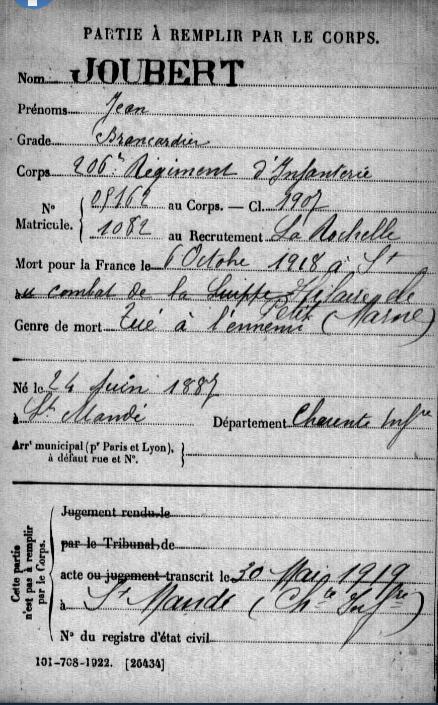 PARTIE À REMPLIR PAR LE CORPS.
Nom JOUBERT
Prénoms Jean
Grade Brancardier
Corps 206e Régiment d'Infanterie
Nº Matricule. { 09162 au Corps. — Cl. 1907
1082 au Recrutement La Rochelle
Mort pour la France le 6 Octobre 1918 à St
au combat de la Suippe Hilaire le
Petit (Marne)
Genre de mort Tué à l'ennemi
Né le 24 Juin 1887
à St Mandé Département Charente Infre
Arrt municipal (pr Paris et Lyon), }
à défaut rue et Nº.
Cette partie n'est pas à remplir par le Corps.
Jugement rendu le
par le Tribunal de
acte ou jugement transcrit le 30 Mai 1919
à St Mandé (Chte Infre)
Nº du registre d'état civil
101-708-1922. [26434]